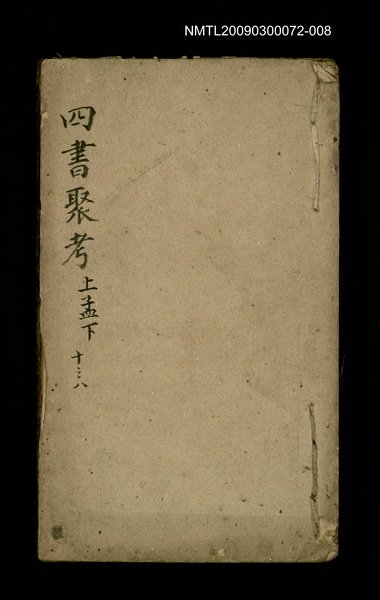 NMTL20090300072-008
四書聚考
上孟下
十之八